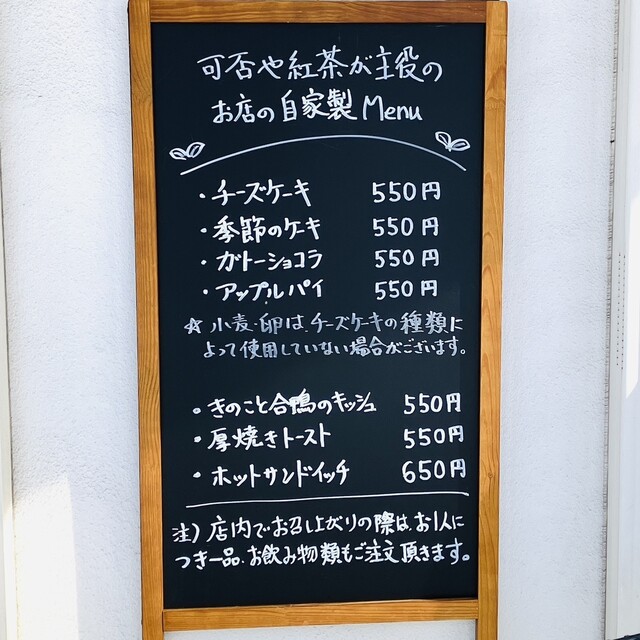 可否や紅茶が主役の
お店の自家製Menu
・チーズケーキ 550円
・季節のケーキ 550円
・ガトーショコラ 550円
・アップルパイ 550円
☆小麦・卵は、チーズケーキの種類に
よって使用していない場合がございます。
・きのこと合鴨のキッシュ 550円
・厚焼きトースト 550円
・ホットサンドイッチ 650円
注)店内でお召し上がりの際は、お1人に
つき一品、お飲み物類もご注文頂きます。